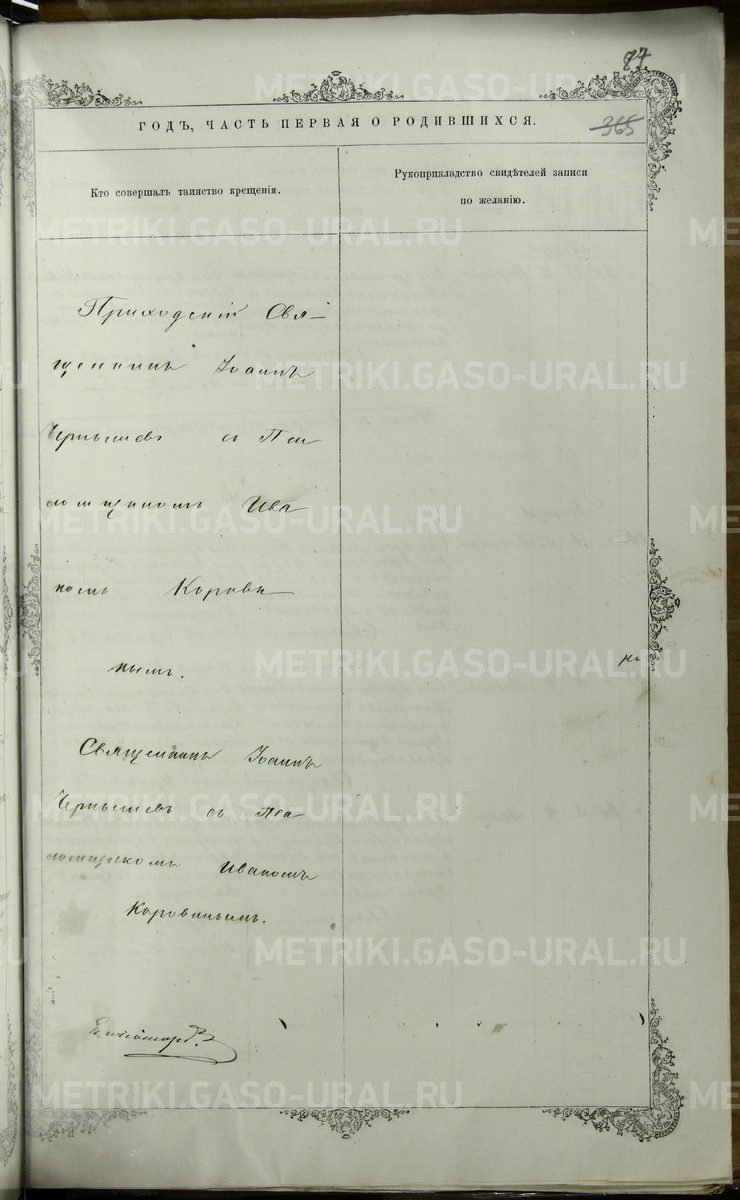 87
365
ГОДЪ, ЧАСТЬ ПЕРВАЯ О РОДИВШИХСЯ.
Кто совершалъ таинство крещенія.
Рукоприкладство свидѣтелей записи
по желанію.
Приходскій Свя-
щенникъ Іоаннъ
Чернышевъ съ Пса
ломщикомъ Ива
номъ Корови
нымъ.
Священникъ Іоаннъ
Чернышевъ съ Пса
ломщикомъ Иваномъ
Коровинымъ.
METRIKI.GASO-URAL.RU